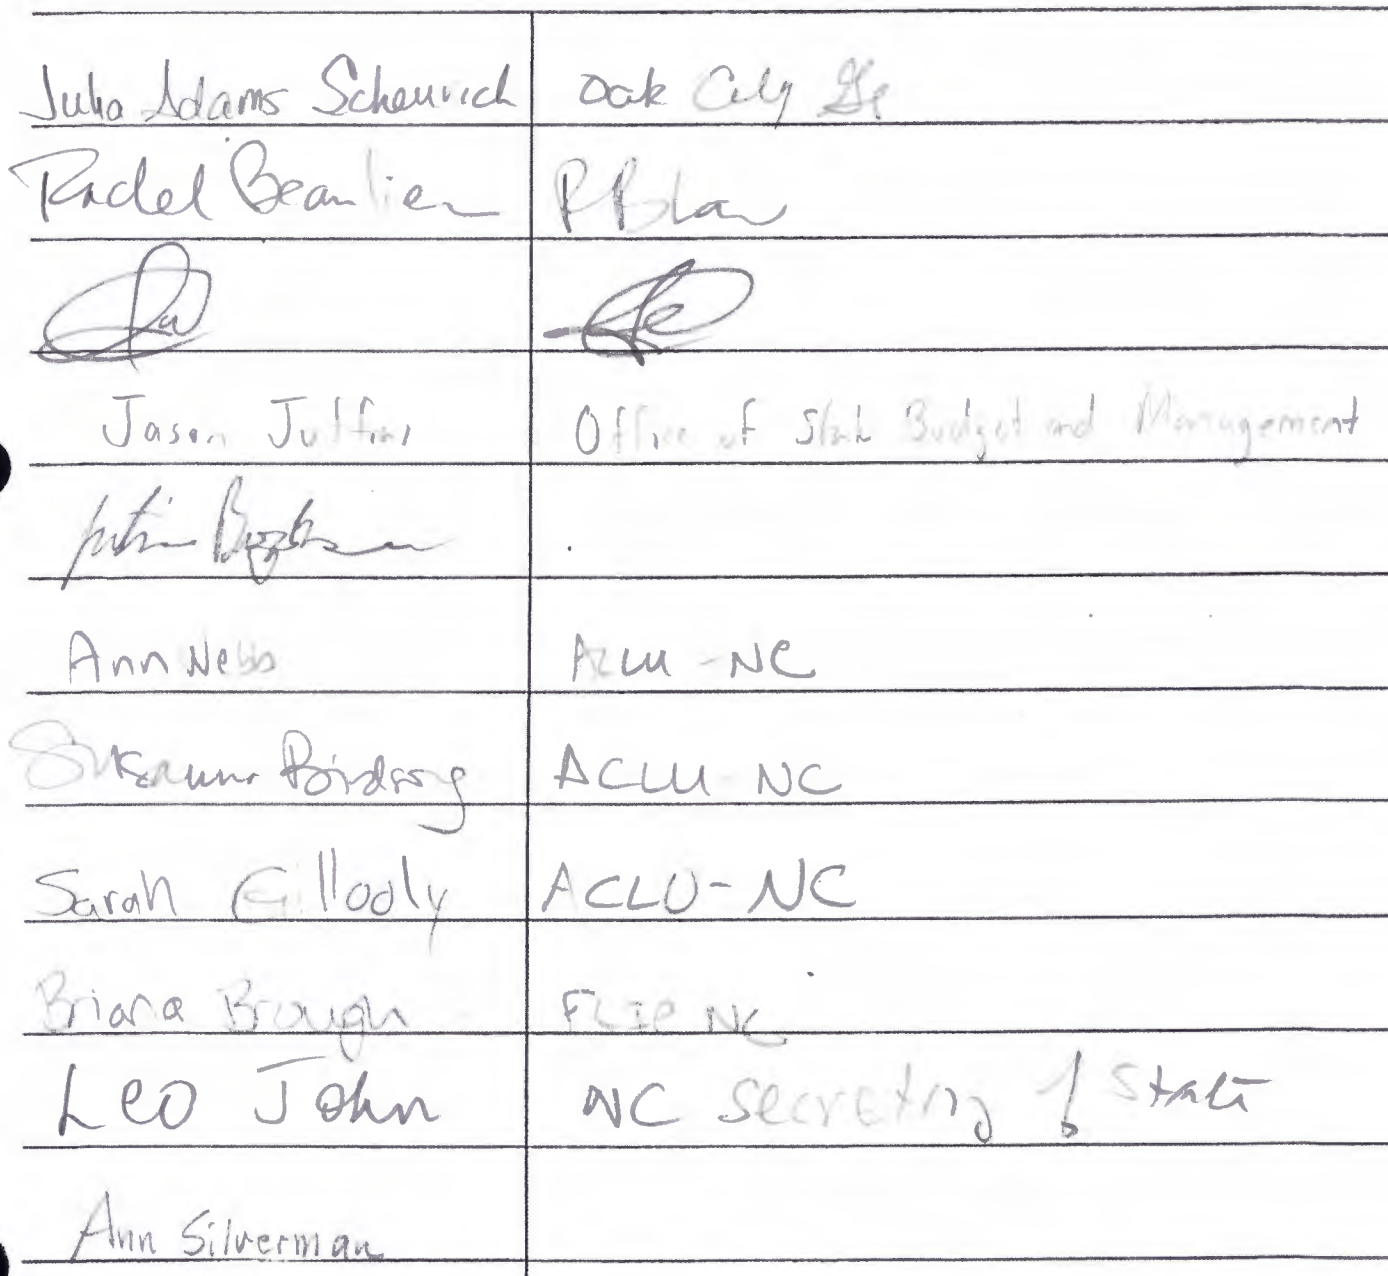 Julia Adams Scheurich Oak City
Rachel Beaulieu
Jason Office of State Budget and Management
Ann Webb ACLU-NC
Susanna Birdsong ACLU-NC
Sarah Gillooly ACLU-NC
Briana Brough FLIP NC
Leo John NC Secretary of State
Ann Silverman